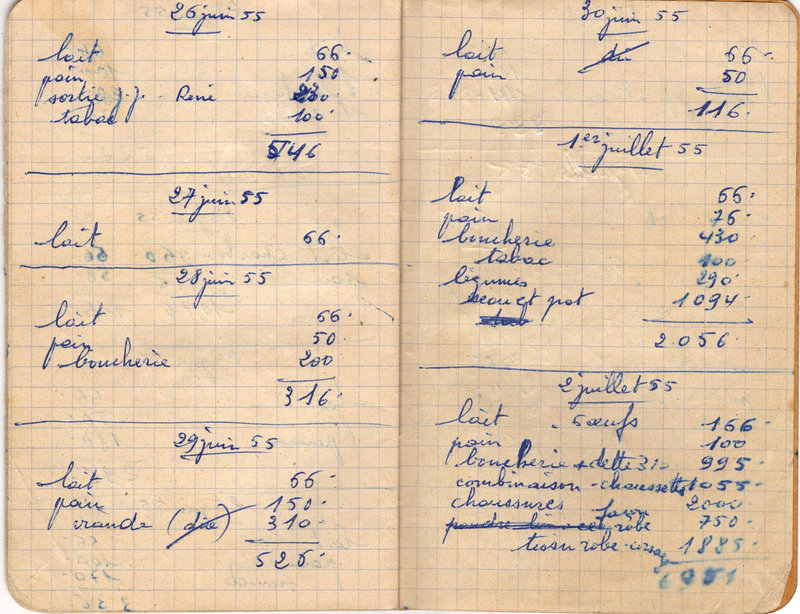 26 juin 55
lait 66.
pain 150
sortie J.J. - René 230
tabac 100.
546
27 juin 55
lait 66.
28 juin 55
lait 66.
pain 50.
boucherie 200
316.
29 juin 55
lait 66.
pain 150.
viande (dûe) 310.
526.
30 juin 55
lait 66.
pain 50.
116.
1er juillet 55
lait 66.
pain 76.
boucherie 430
tabac 100
légumes 290
seau et pot 1094.
2.056.
2 juillet 55
lait . 5 œufs 166.
pain 100
boucherie + dette 310 995.
combinaison - chaussettes 1055.
chaussures 2000
façon robe 750.
tissu robe - corsage 1885.
6951